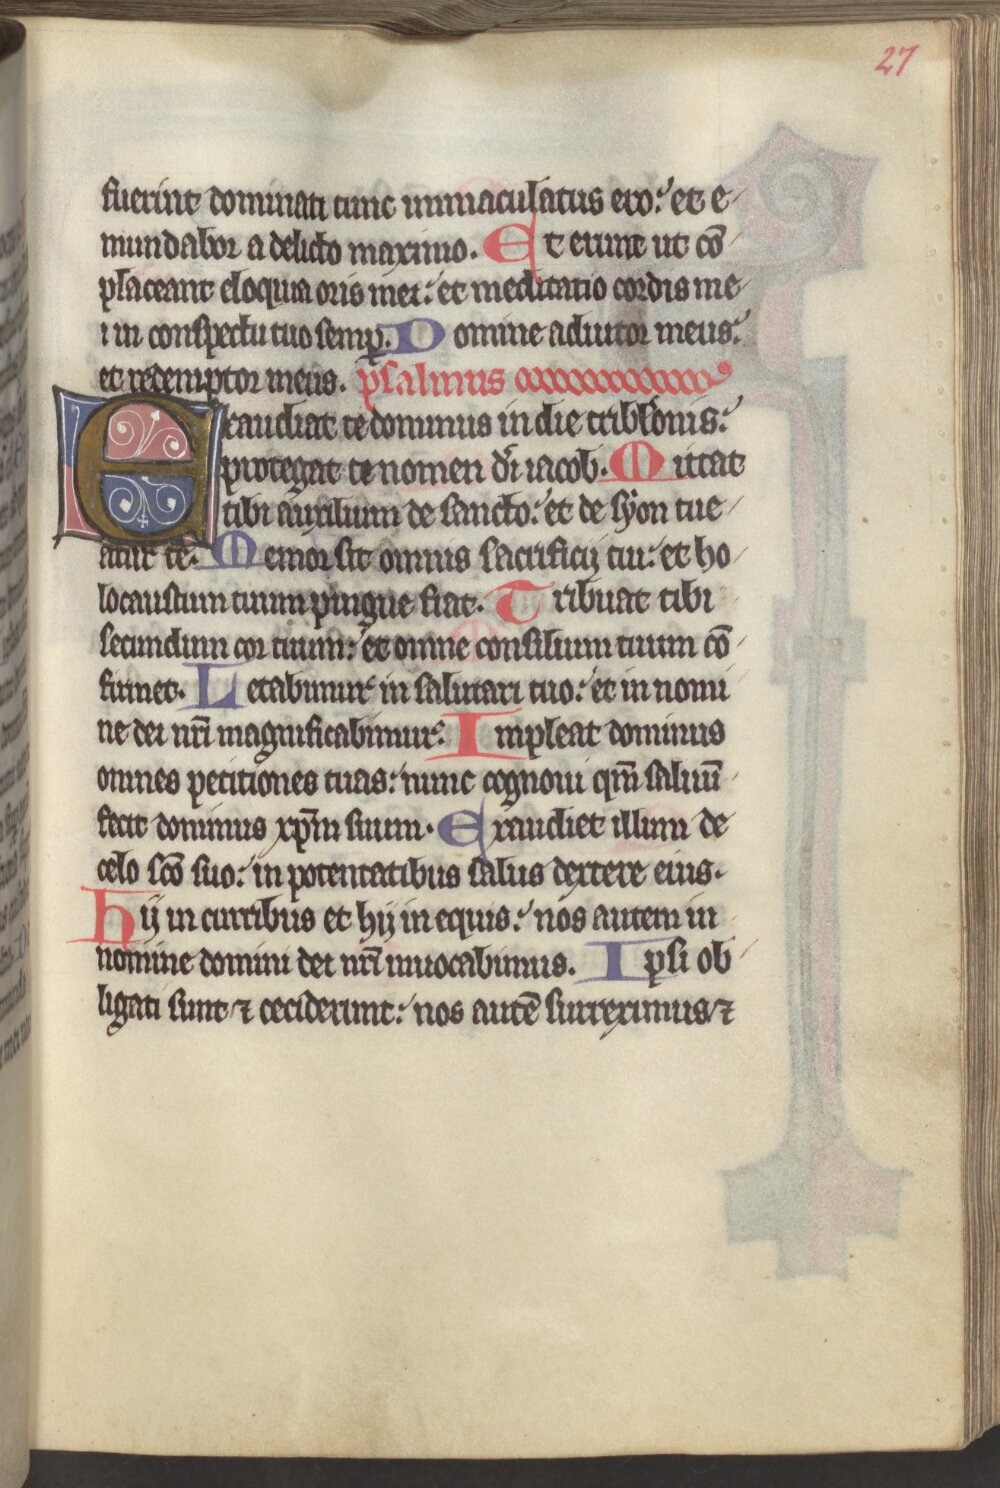 27
fuerint dominati tunc immaculatus ero: et e
mundabor a delicto maximo. Et erunt ut cō
placeant eloquia oris mei: et meditatio cordis me
i in conspectu tuo semꝑ. Domine adiutor meus:
et redemptor meus. psalmus
Exaudiat te dominus in die tribl̄onis:
protegat te nomen dī iacob. Mittat
tibi auxilium de sancto: et de syon tue
atur te. Memor sit omnis sacrificij tui: et ho
locaustum tuum pingue fiat. Tribuat tibi
secundum cor tuum: et omne consilium tuum cō
firmet. Letabimur in salutari tuo: et in nomi
ne dei nr̄i magnificabimur. Impleat dominus
omnes petitiones tuas: nunc cognoui qm̄ saluū
fecit dominus xp̄m suum. Exaudiet illum de
celo scō suo: in potentatibus salus dextere eius.
Hij in curribus et hij in equis: nos autem in
nomine domini dei nr̄i inuocabimus. Ipsi ob
ligati sunt ⁊ ceciderunt: nos autē surreximus ⁊